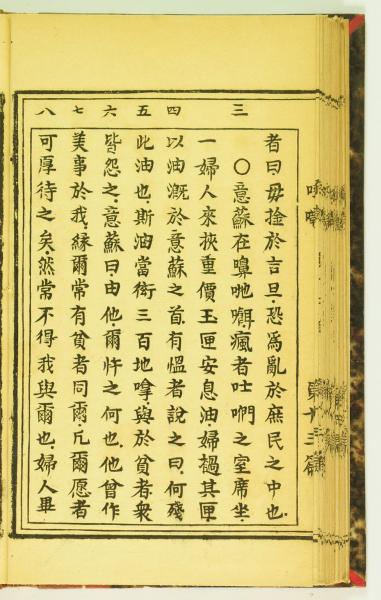 者曰毋捦於言旦.恐為亂於庶民之中也.
三 ○意蘇在嘷呭瘋者吐之室席坐.
一婦人來挾重價玉匣安息油婦撾其匣.
四 以油溉於意蘇之首.有慍者說之曰.何殘
五 此油也.斯油當銜三百地嗱.與於貧者.衆
六 皆怨之.意蘇曰.由他.爾忤之何也.他曾作
七 美事於我.緣爾常有貧者同爾.凢爾愿者
八 可厚待之矣.然常不得我與爾也.婦人畢
十三篇